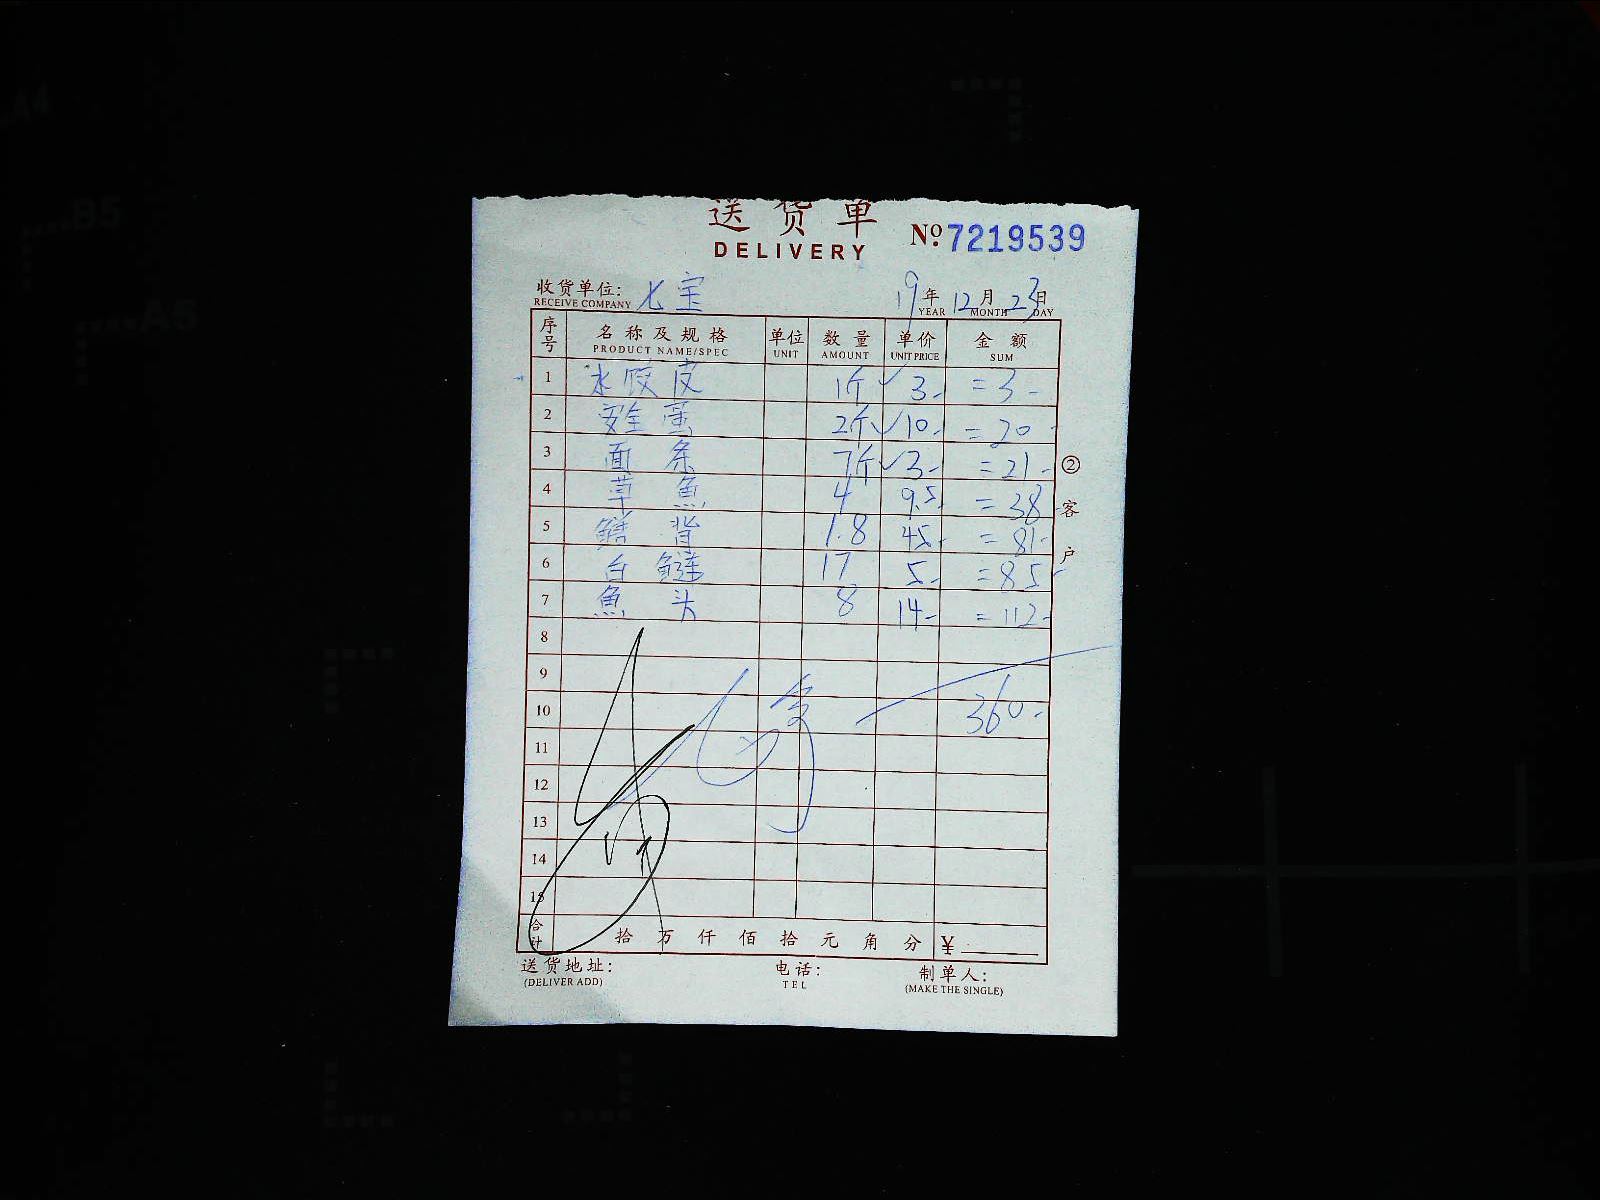 送货单
DELIVERY
№ 7219539
收货单位: 七宝 19年12月23日
RECEIVE COMPANY YEAR MONTH DAY
序号 名称及规格 单位 数量 单价 金额
PRODUCT NAME/SPEC UNIT AMOUNT UNIT PRICE SUM
1 水饺皮 1斤 ✓ 3- =3-
2 安全蛋 2斤 ✓ 10- =20-
3 面条 7斤 ✓ 3- =21-
4 草魚 4 9.5- =38
5 鳝背 1.8 45- =81-
6 白鲢 17 5- =85-
7 魚头 8 14- =112-
8
9
10 360-
11
12
13
14
15
合计 拾万仟佰拾元角分 ¥
送货地址: 电话: 制单人:
(DELIVER ADD) TEL (MAKE THE SINGLE)
②客户
A4
B5
A5